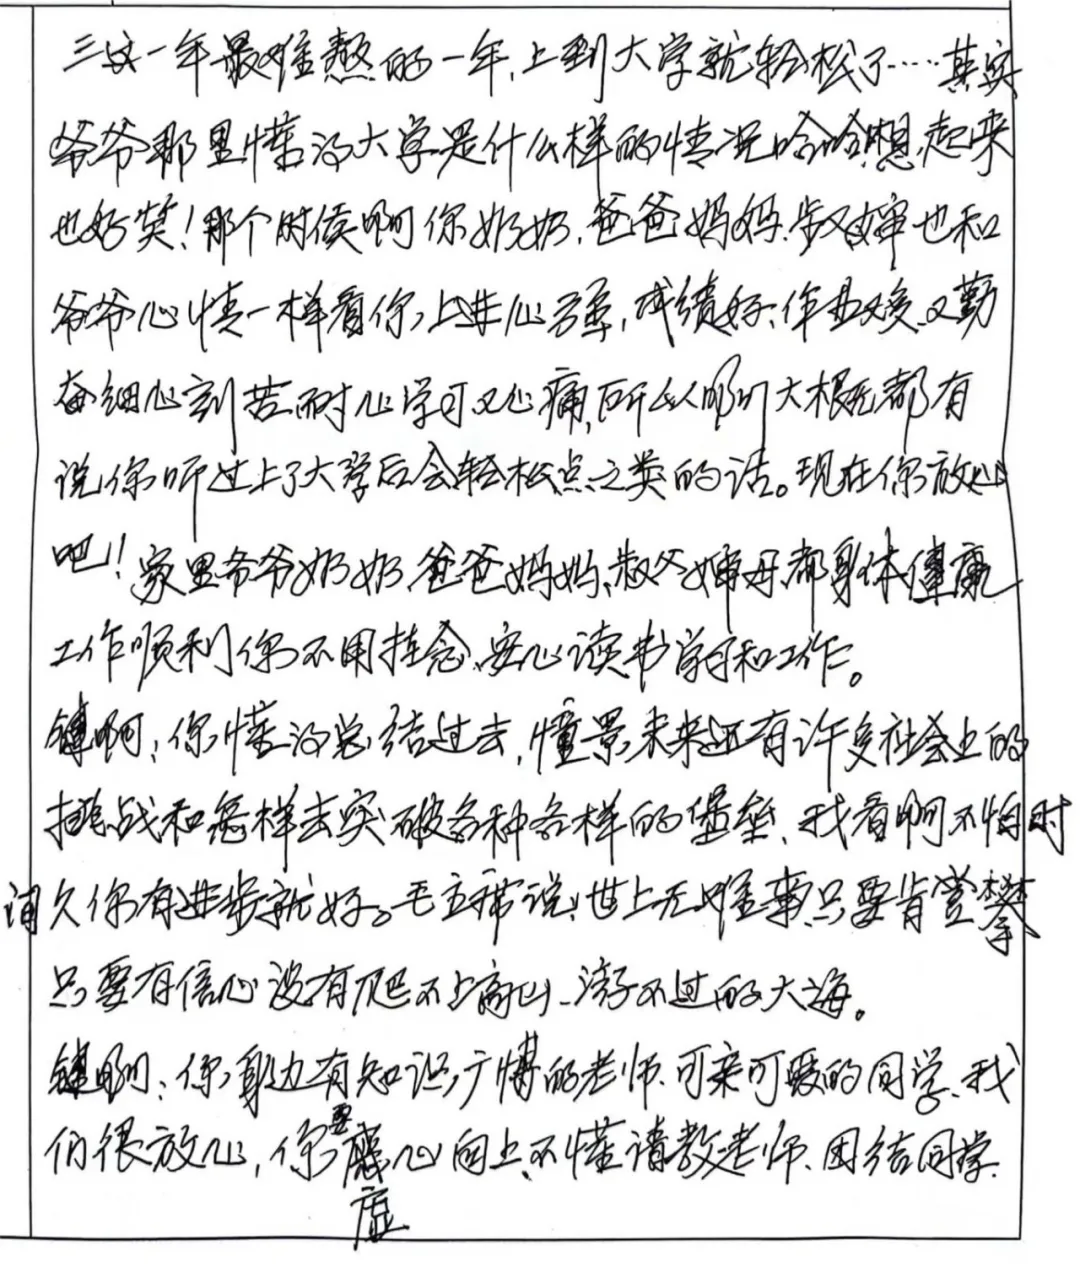 三这一年最难熬的一年,上到大学就轻松了……其实
爷爷那里懂得大学是什么样的情况哈哈想起来
也好笑!那个时侯啊你奶奶.爸爸妈妈.叔婶也和
爷爷心情一样看你,上进心强,成绩好、作业又多又勤
奋细心刻苦耐心学习又心痛,所以咱们大概死都有
说你听过上了大学后会轻松点之类的话。现在你放心
吧!!家里爷爷奶奶.爸爸妈妈、叔父婶母都身体健康
工作顺利你不用挂念.安心读书学习和工作。
健啊:你懂得总结过去,憧景未来还有许多社会上的
挑战和怎样去突破各种各样的堡垒、我看啊不怕时
间久你有进步就好。毛主席说:世上无难事只要肯登攀
只要有信心没有爬不上高山、游不过的大海。
健啊:你身边有知识广博的老师.可亲可爱的同学.我
们很放心,你要虚心向上.不懂请教老师、团结同学.
虚